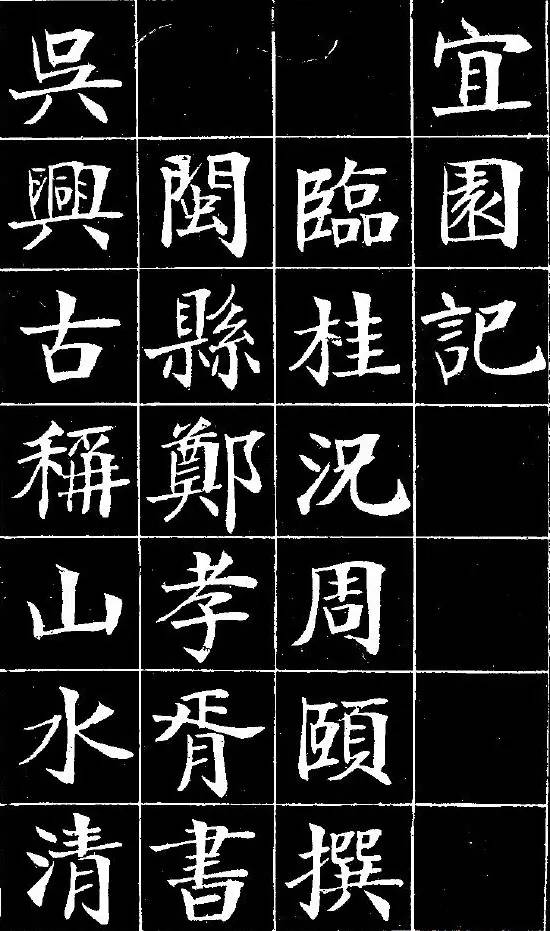 宜園記
臨桂況周頤撰
閩縣鄭孝胥書
吳興古稱山水清